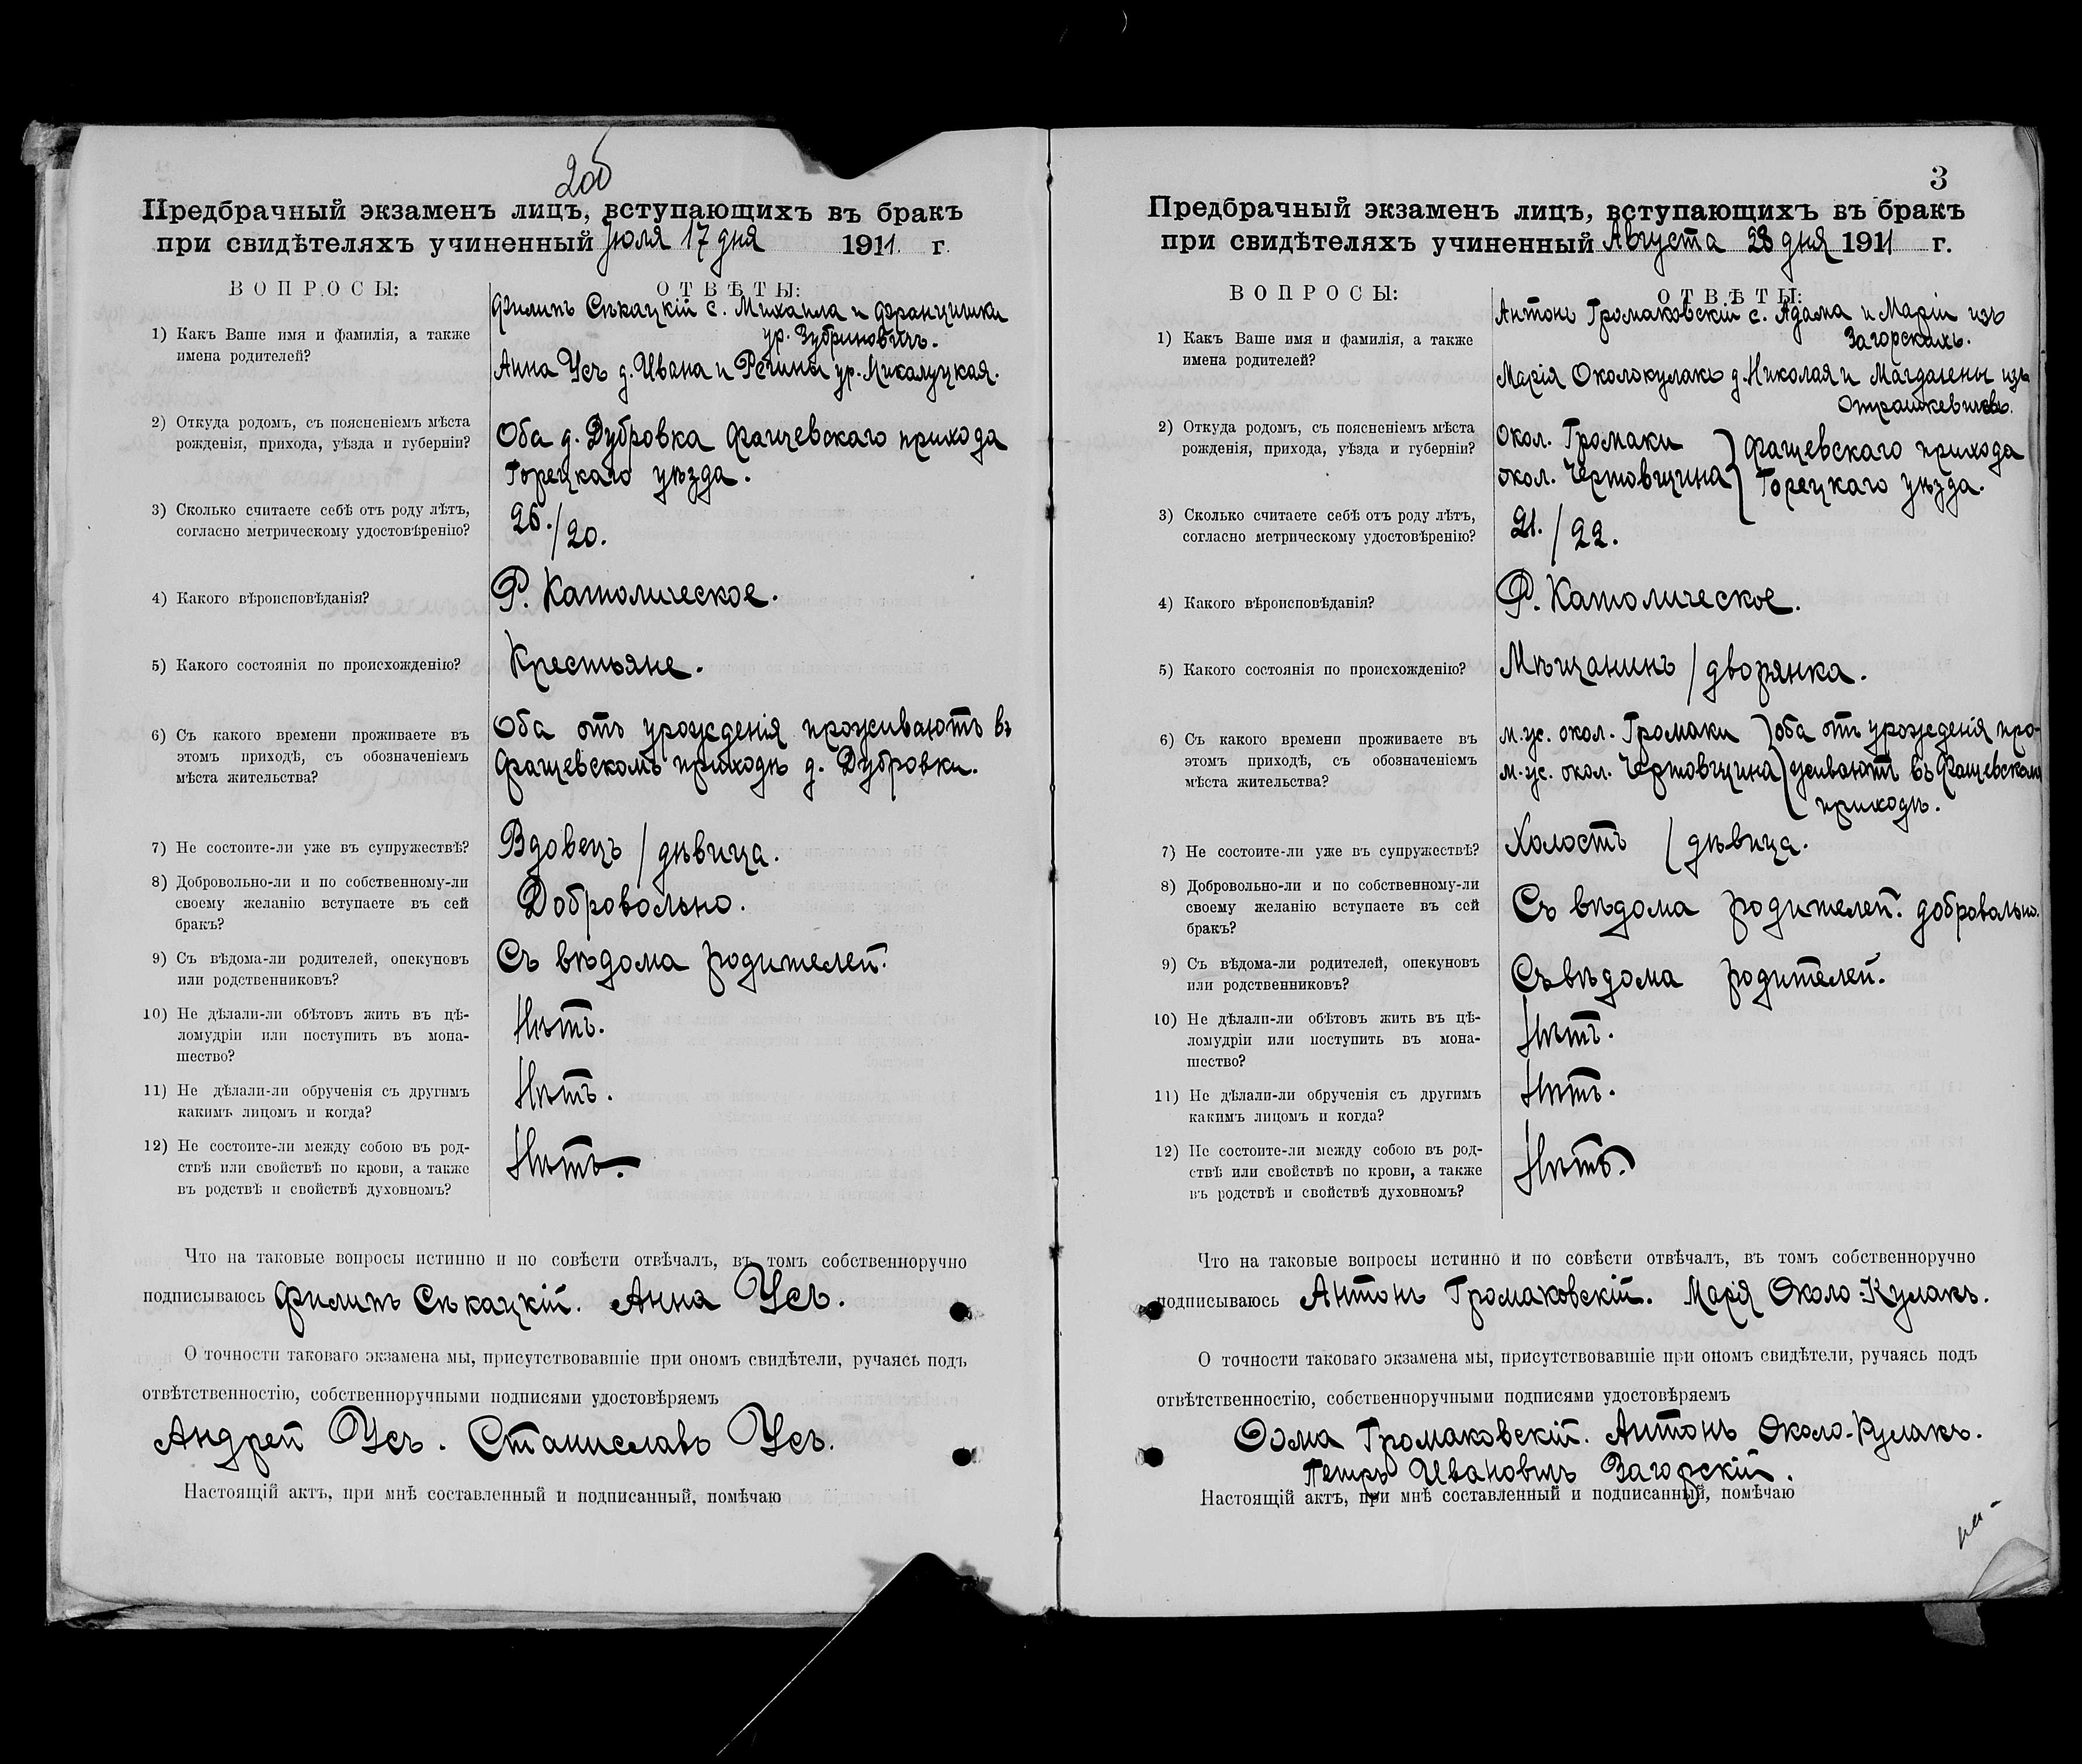 2об
Предбрачный экзаменъ лицъ, вступающихъ въ бракъ
при свидѣтеляхъ учиненный Іюля 17 дня 1911 г.
ВОПРОСЫ:
ОТВѢТЫ:
1) Какъ Ваше имя и фамилія, а также
имена родителей?
Филипъ Сѣкацкій с. Михаила и Францишки
ур. Зубриновичъ.
Анна Усъ д. Ивана и Регины ур. Микалуцкая.
2) Откуда родомъ, съ поясненіемъ мѣста
рожденія, прихода, уѣзда и губерніи?
Оба д. Дубровка Фащевскаго прихода
Горецкаго уѣзда.
3) Сколько считаете себѣ отъ роду лѣтъ,
согласно метрическому удостовѣренію?
26./20.
4) Какого вѣроисповѣданія?
Р. Католическое.
5) Какого состоянія по происхожденію?
Крестьяне.
6) Съ какого времени проживаете въ
этомъ приходѣ, съ обозначеніемъ
мѣста жительства?
Оба отъ урожденія проживаютъ въ
Фащевскомъ приходѣ д. Дубровки.
7) Не состоите-ли уже въ супружествѣ?
Вдовецъ / дѣвица.
8) Добровольно-ли и по собственному-ли
своему желанію вступаете въ сей
бракъ?
Добровольно.
9) Съ вѣдома-ли родителей, опекуновъ
или родственниковъ?
Съ вѣдома родителей.
10) Не дѣлали-ли обѣтовъ жить въ цѣ-
ломудріи или поступить въ мона-
шество?
Нѣтъ.
11) Не дѣлали-ли обрученія съ другимъ
какимъ лицомъ и когда?
Нѣтъ.
12) Не состоите-ли между собою въ род-
ствѣ или свойствѣ по крови, а также
въ родствѣ и свойствѣ духовномъ?
Нѣтъ.
Что на таковые вопросы истинно и по совѣсти отвѣчалъ, въ томъ собственноручно
подписываюсь Филипъ Сѣкацкій. Анна Усъ.
О точности таковаго экзамена мы, присутствовавшіе при ономъ свидѣтели, ручаясь подъ
отвѣтственностію, собственноручными подписями удостовѣряемъ
Андрей Усъ. Станиславъ Усъ.
Настоящій актъ, при мнѣ составленный и подписанный, помѣчаю
3
Предбрачный экзаменъ лицъ, вступающихъ въ бракъ
при свидѣтеляхъ учиненный Августа 28 дня 1911 г.
ВОПРОСЫ:
ОТВѢТЫ:
1) Какъ Ваше имя и фамилія, а также
имена родителей?
Антонъ Громаковскій с. Адама и Маріи изъ
Загорскихъ.
Марія Околокулакъ д. Николая и Магдалены изъ
Отрашкевичевъ.
2) Откуда родомъ, съ поясненіемъ мѣста
рожденія, прихода, уѣзда и губерніи?
окол. Громаки } Фащевскаго прихода
окол. Чертовщина } Горецкаго уѣзда.
3) Сколько считаете себѣ отъ роду лѣтъ,
согласно метрическому удостовѣренію?
21. / 22.
4) Какого вѣроисповѣданія?
Р. Католическое.
5) Какого состоянія по происхожденію?
Мѣщанинъ / дворянка.
6) Съ какого времени проживаете въ
этомъ приходѣ, съ обозначеніемъ
мѣста жительства?
м. ж. окол. Громаки } оба отъ урожденія про-
м. ж. окол. Чертовщина } живаютъ въ Фащевскомъ
приходѣ.
7) Не состоите-ли уже въ супружествѣ?
Холостъ / дѣвица.
8) Добровольно-ли и по собственному-ли
своему желанію вступаете въ сей
бракъ?
Съ вѣдома родителей. добровольно.
9) Съ вѣдома-ли родителей, опекуновъ
или родственниковъ?
Съ вѣдома родителей.
10) Не дѣлали-ли обѣтовъ жить въ цѣ-
ломудріи или поступить въ мона-
шество?
Нѣтъ.
11) Не дѣлали-ли обрученія съ другимъ
какимъ лицомъ и когда?
Нѣтъ.
12) Не состоите-ли между собою въ род-
ствѣ или свойствѣ по крови, а также
въ родствѣ и свойствѣ духовномъ?
Нѣтъ.
Что на таковые вопросы истинно и по совѣсти отвѣчалъ, въ томъ собственноручно
подписываюсь Антонъ Громаковскій. Марія Около-Кулакъ.
О точности таковаго экзамена мы, присутствовавшіе при ономъ свидѣтели, ручаясь подъ
отвѣтственностію, собственноручными подписями удостовѣряемъ
Ѳома Громаковскій. Антонъ Около-Кулакъ.
Петръ Ивановичъ Загорскій.
Настоящій актъ, при мнѣ составленный и подписанный, помѣчаю